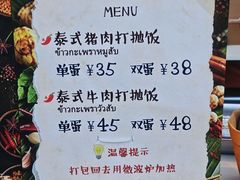 MENU
泰式猪肉打抛饭
ข้าวกะเพราหมูสับ
单蛋 ¥35 双蛋 ¥38
泰式牛肉打抛饭
ข้าวกะเพราวัวสับ
单蛋 ¥45 双蛋 ¥48
温馨提示
打包回去用微波炉加热